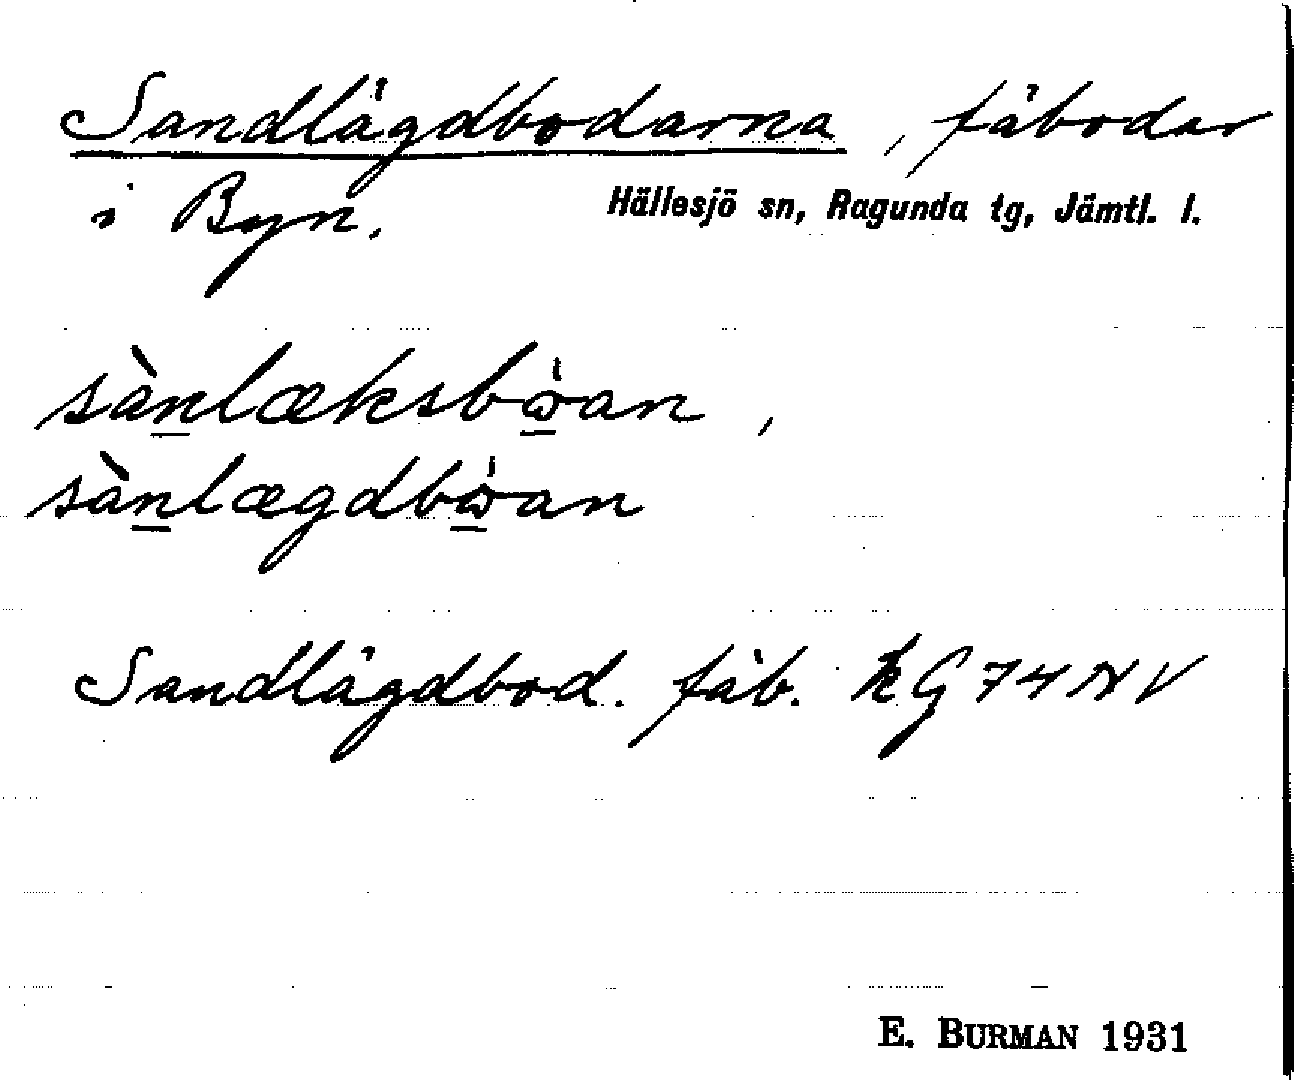 Sandlägdbodarna, fäbodar
i Byn. Hällesjö sn, Ragunda tg, Jämtl. l.
sànlæksbὼan,
sànlægdbὼan
Sandlägdbod. fäb. kG74NV
E. BURMAN 1931